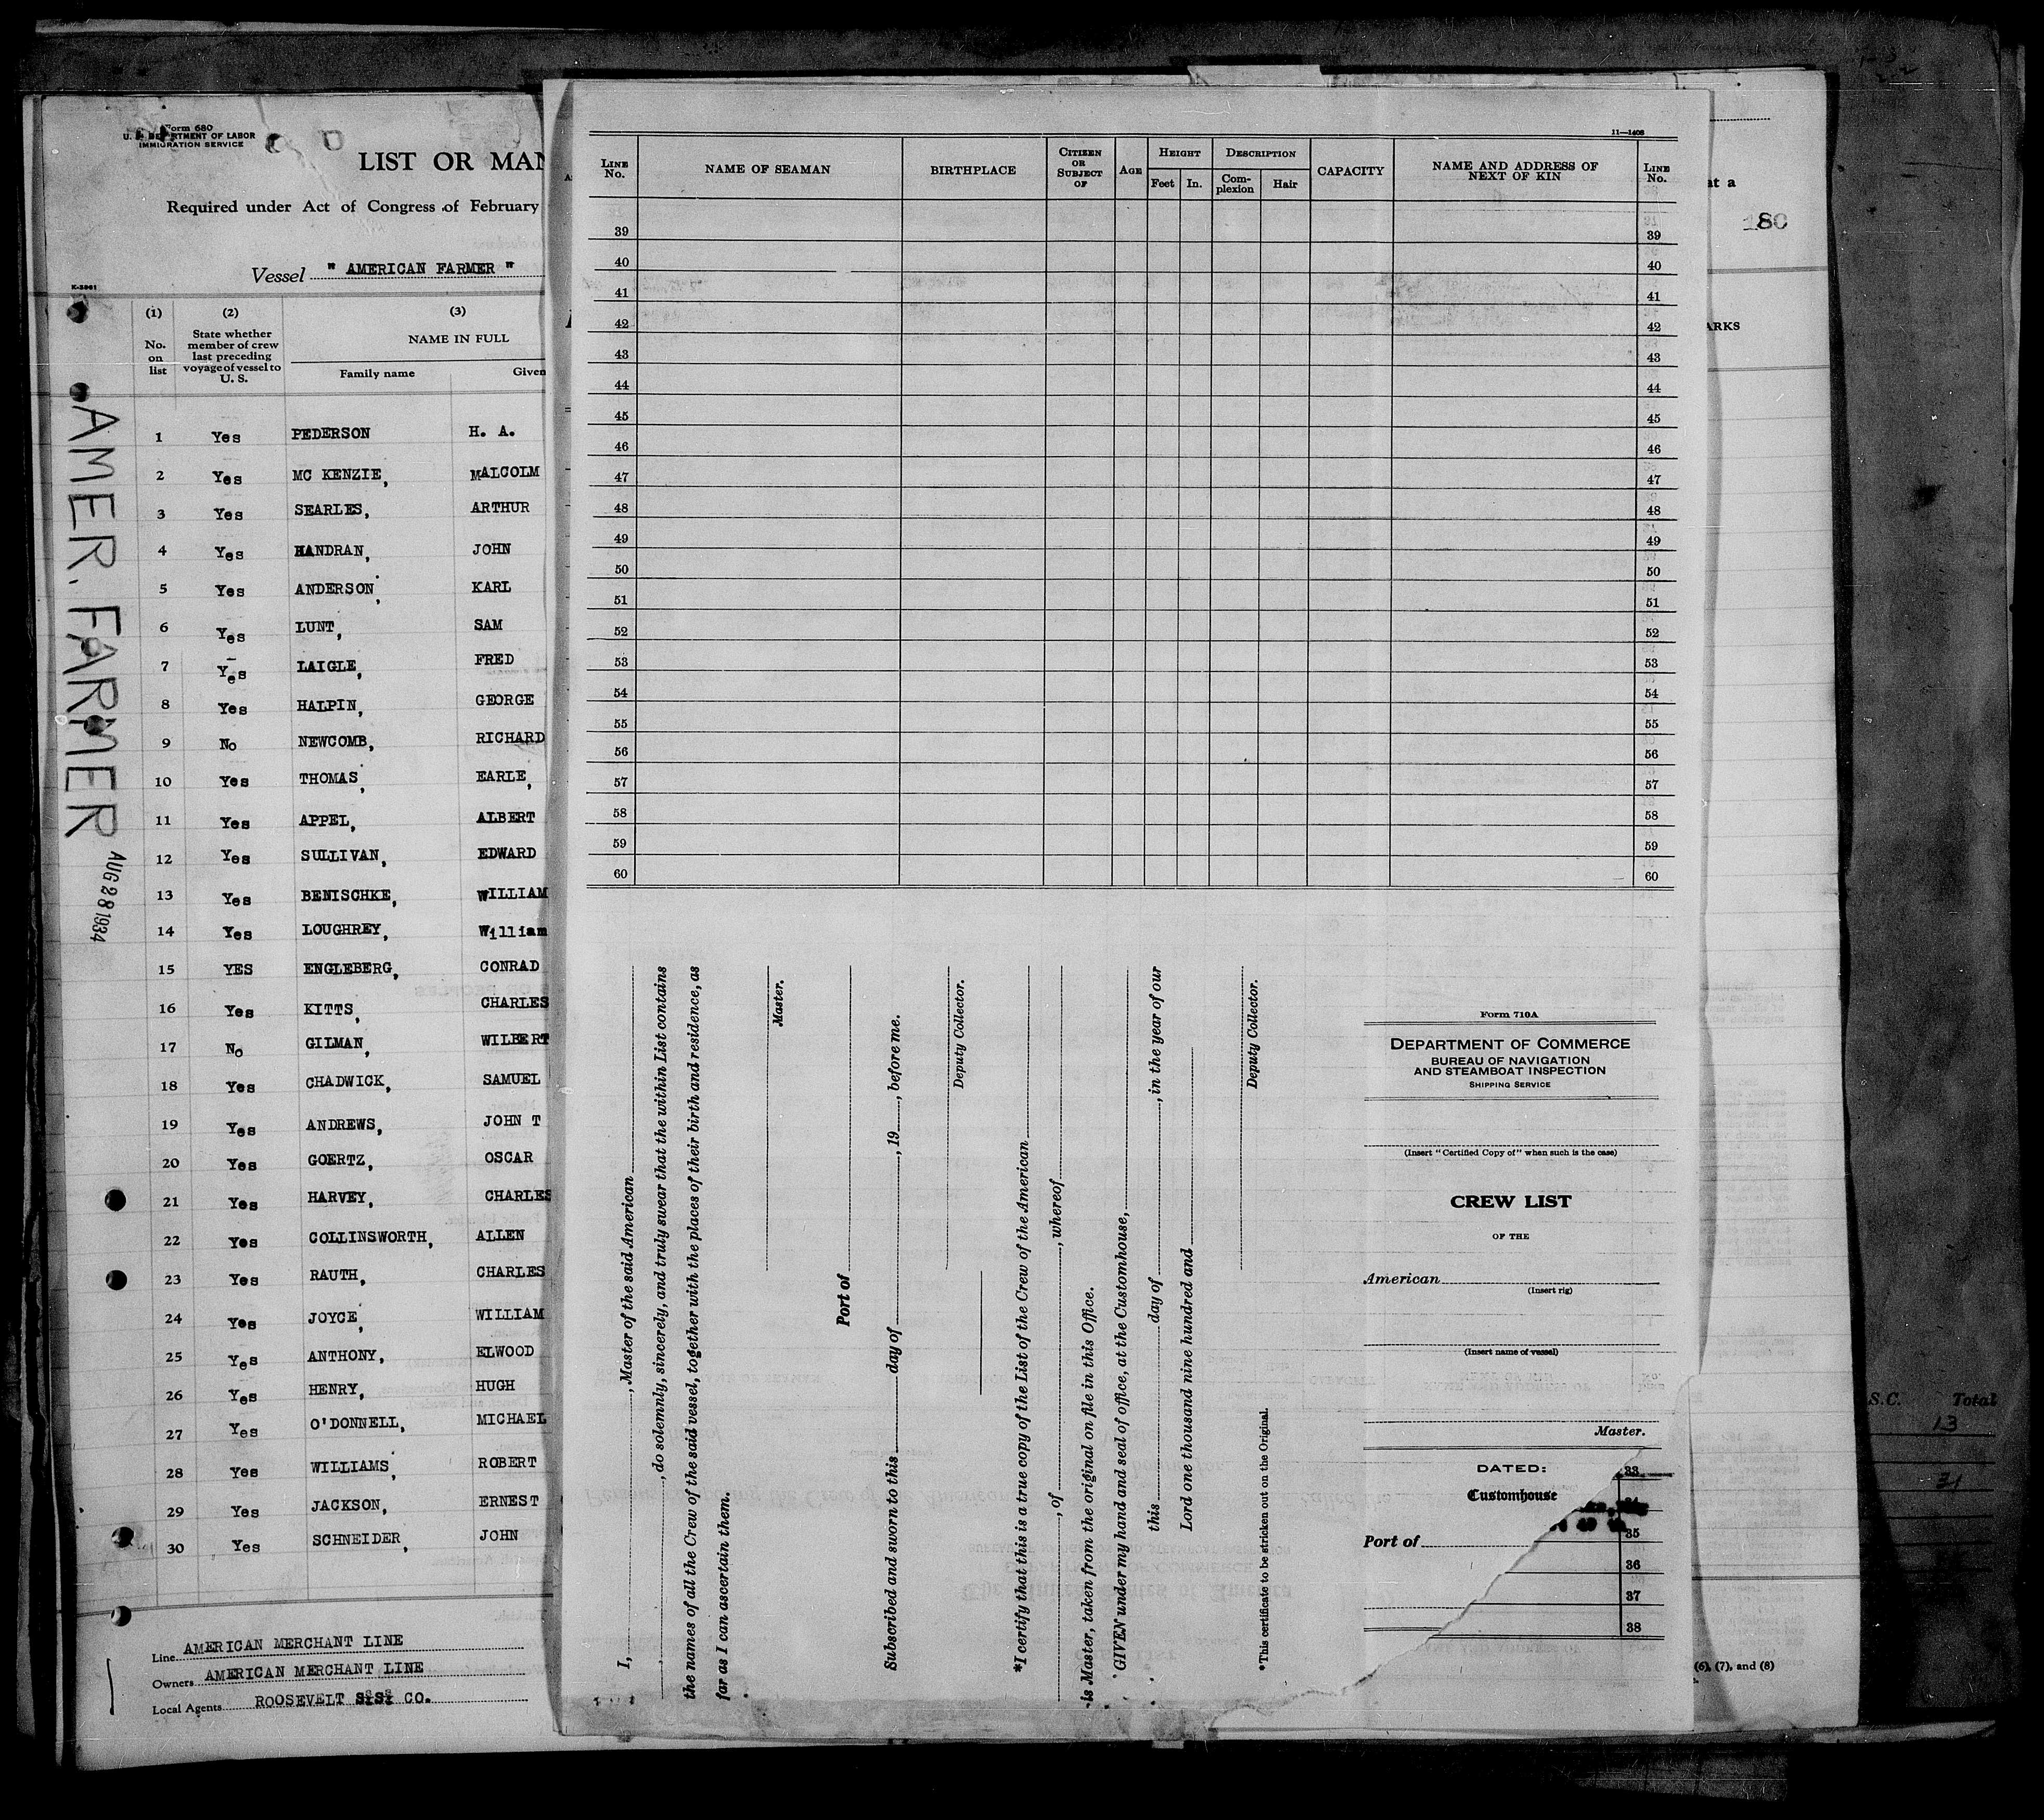 Form 680
U. S. DEPARTMENT OF LABOR
IMMIGRATION SERVICE
LIST OR MAN
Required under Act of Congress of February
Vessel " AMERICAN FARMER "
K-3961
(1) (2) (3)
No. on list
State whether member of crew last preceding voyage of vessel to U. S.
NAME IN FULL
Family name Given
1 Yes PEDERSON H. A.
2 Yes MC KENZIE, MALCOLM
3 Yes SEARLES, ARTHUR
4 Yes HANDRAN, JOHN
5 Yes ANDERSON, KARL
6 Yes LUNT, SAM
7 Yes LAIGLE, FRED
8 Yes HALPIN, GEORGE
9 No NEWCOMB, RICHARD
10 Yes THOMAS, EARLE,
11 Yes APPEL, ALBERT
12 Yes SULLIVAN, EDWARD
13 Yes BENISCHKE, WILLIAM
14 Yes LOUGHREY, William
15 YES ENGLEBERG, CONRAD
16 Yes KITTS, CHARLES
17 No GILMAN, WILBERT
18 Yes CHADWICK, SAMUEL
19 Yes ANDREWS, JOHN T
20 Yes GOERTZ, OSCAR
21 Yes HARVEY, CHARLES
22 Yes COLLINSWORTH, ALLEN
23 Yes RAUTH, CHARLES
24 Yes JOYCE, WILLIAM
25 Yes ANTHONY, ELWOOD
26 Yes HENRY, HUGH
27 Yes O'DONNELL, MICHAEL
28 Yes WILLIAMS, ROBERT
29 Yes JACKSON, ERNEST
30 Yes SCHNEIDER, JOHN
Line AMERICAN MERCHANT LINE
Owners AMERICAN MERCHANT LINE
Local Agents ROOSEVELT S.S. CO.
AMER. FARMER
AUG 28 1934
11—1408
LINE No. NAME OF SEAMAN BIRTHPLACE CITIZEN OR SUBJECT OF AGE HEIGHT DESCRIPTION CAPACITY NAME AND ADDRESS OF NEXT OF KIN LINE No.
Feet In. Complexion Hair
39 39
40 40
41 41
42 42
43 43
44 44
45 45
46 46
47 47
48 48
49 49
50 50
51 51
52 52
53 53
54 54
55 55
56 56
57 57
58 58
59 59
60 60
I, , Master of the said American
, do solemnly, sincerely, and truly swear that the within List contains
the names of all the Crew of the said vessel, together with the places of their birth and residence, as
far as I can ascertain them.
Master.
Port of
Subscribed and sworn to this day of , 19 , before me.
Deputy Collector.
*I certify that this is a true copy of the List of the Crew of the American
, of , whereof
is Master, taken from the original on file in this Office.
GIVEN under my hand and seal of office, at the Customhouse,
this day of , in the year of our
Lord one thousand nine hundred and
Deputy Collector.
*This certificate to be stricken out on the Original.
Form 710A
DEPARTMENT OF COMMERCE
BUREAU OF NAVIGATION
AND STEAMBOAT INSPECTION
SHIPPING SERVICE
(Insert "Certified Copy of" when such is the case)
CREW LIST
OF THE
American
(Insert rig)
(Insert name of vessel)
Master.
DATED:
Customhouse
Port of
33
35
36
37
38
at a
180
ARKS
S.C. Total
13
31
(6), (7), and (8)